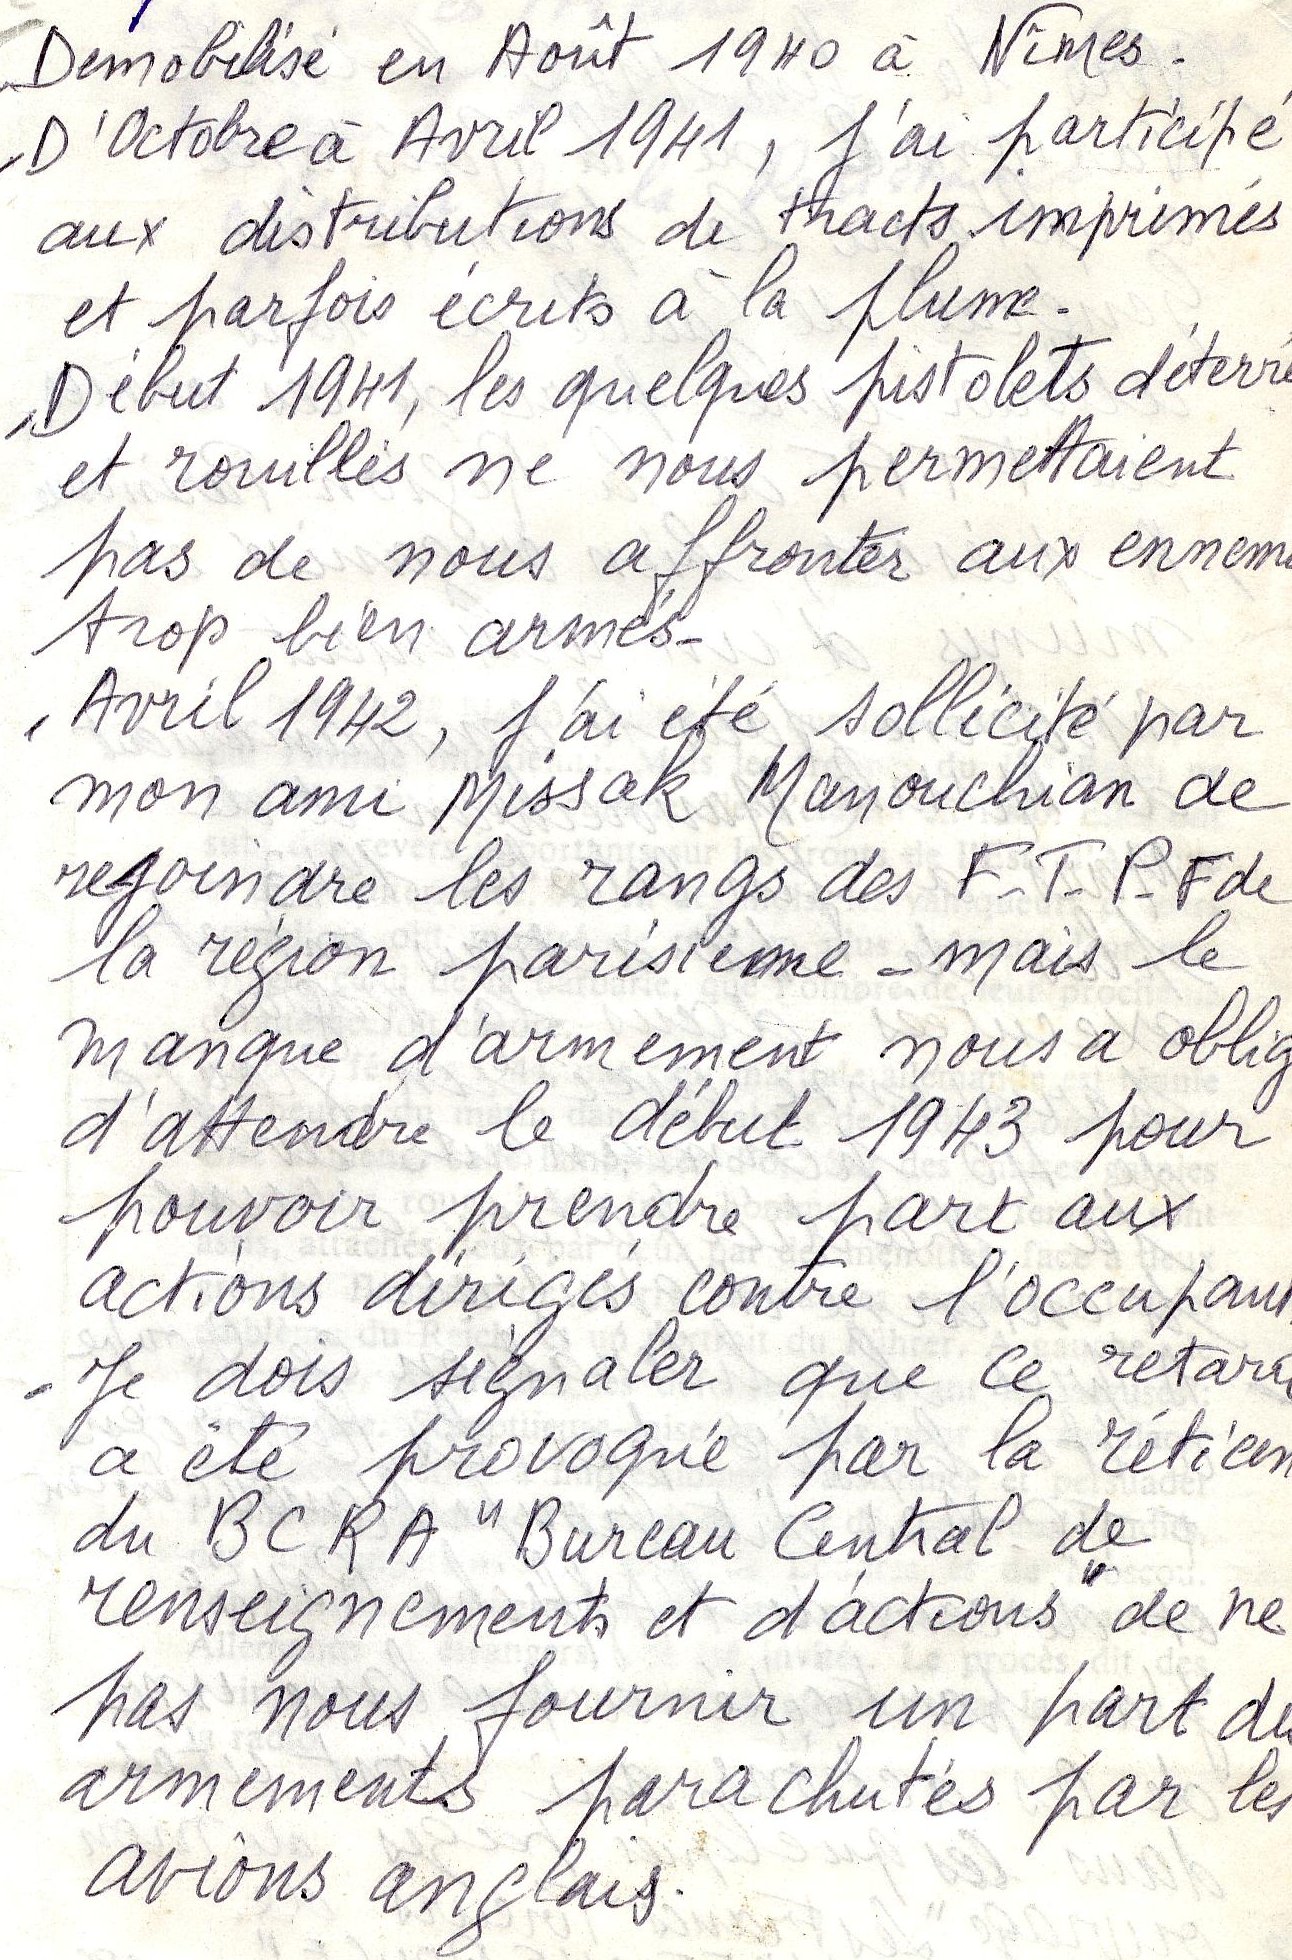 Demobilisé en Août 1940 à Nîmes.
D'Octobre à Avril 1941, j'ai participé
aux distributions de tracts imprimés
et parfois écrits à la plume.
Début 1941, les quelques pistolets déterré
et rouillés ne nous permettaient
pas de nous affronter aux ennem
trop bien armés-
Avril 1942, j'ai été sollicité par
mon ami Missak Manouchian de
rejoindre les rangs des F-T-P-F de
la région parisienne - mais le
manque d'armement nous a oblig
d'attendre le début 1943 pour
pouvoir prendre part aux
actions dirigés contre l'occupant
- Je dois signaler que ce retard
a été provoqué par la rétican
du BCRA "Bureau Central de
renseignements et d'actions" de ne
pas nous fournir un part des
armements parachutés par les
avions anglais.